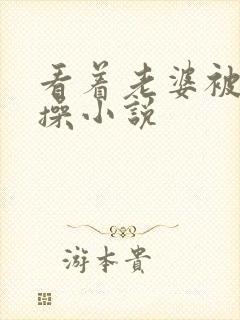 看着老婆被
操小説
游本貴